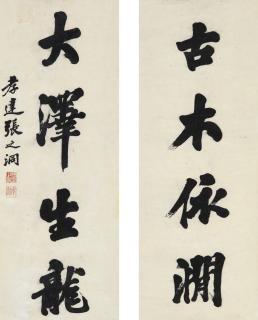 古木依澗
大澤生龍
孝達張之洞